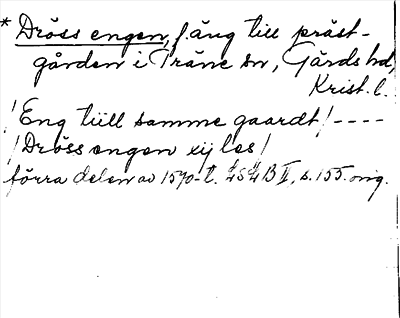 * Dröss engen, f. äng till präst-
gården i Träne sn, Gärds hd,
Krist. l.
! Eng tiill samme gaardt! ----
! Dröss engen xij les!
förra delen av 1570-t. LSLB II, s. 155. orig.